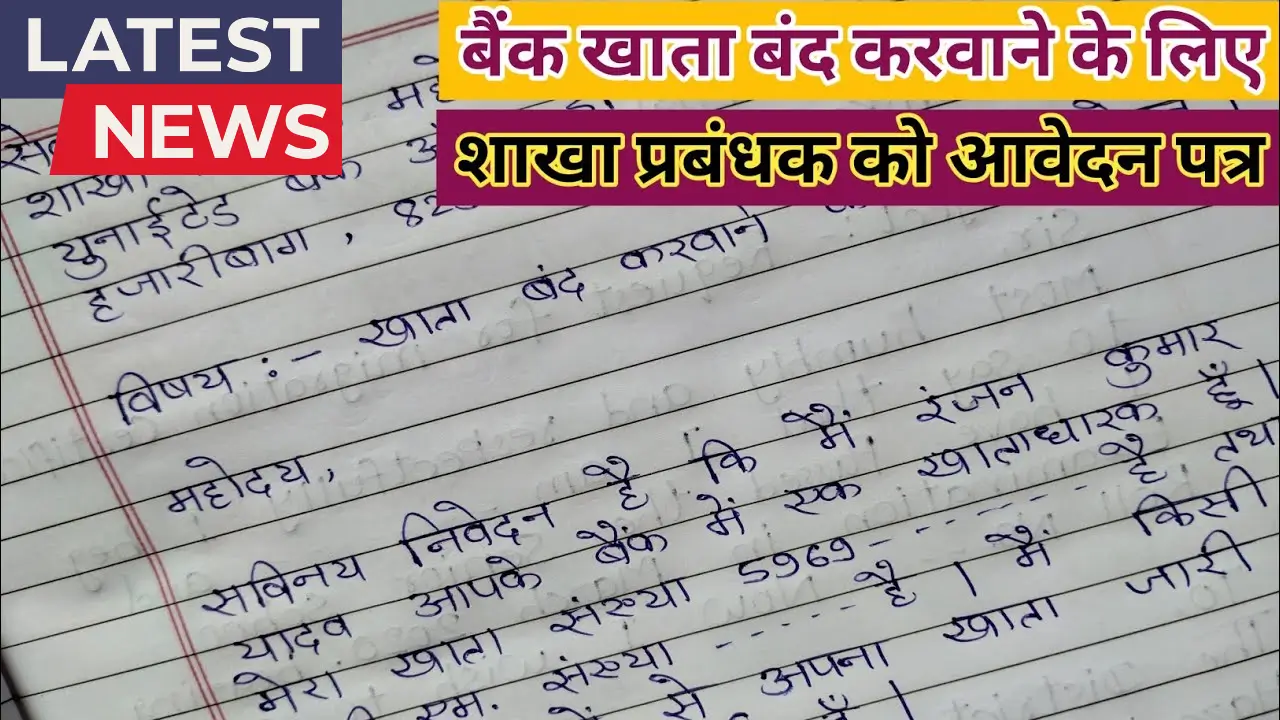 LATEST
NEWS
बैंक खाता बंद करवाने के लिए
शाखा प्रबंधक को आवेदन पत्र
शाखा
युनाईटेड बैंक
हजारीबाग, 82
विषय :- खाता बंद करवाने
महोदय,
सविनय निवेदन है कि मैं रंजन कुमार
यादव आपके बैंक में एक खाताधारक हूँ।
मेरा खाता संख्या 5969------ है तथ
एम. संख्या ----- है। मैं किसी
से अपना खाता जारी